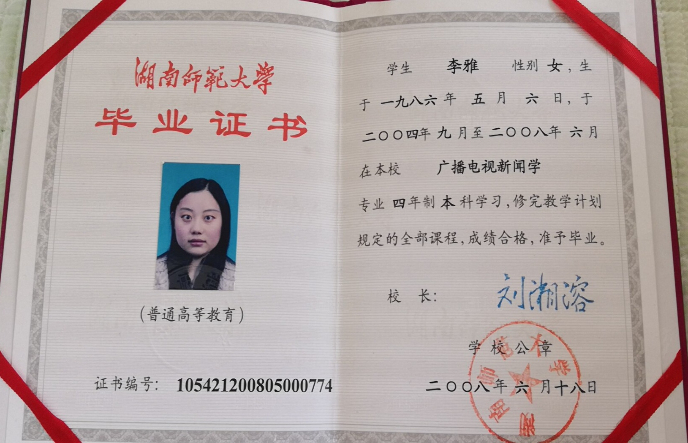 湖南师范大学
毕业证书
(普通高等教育)
证书编号: 105421200805000774
学生 李雅 性别 女, 生
于 一九八六 年 五 月 六 日, 于
二〇〇四年 九 月至 二〇〇八年 六 月
在本校 广播电视新闻学
专业 四 年制 本 科学习, 修完教学计划
规定的全部课程, 成绩合格, 准予毕业。
校 长: 刘湘溶
学 校 公 章
二〇〇八年 六 月十八日
湖南师范大学